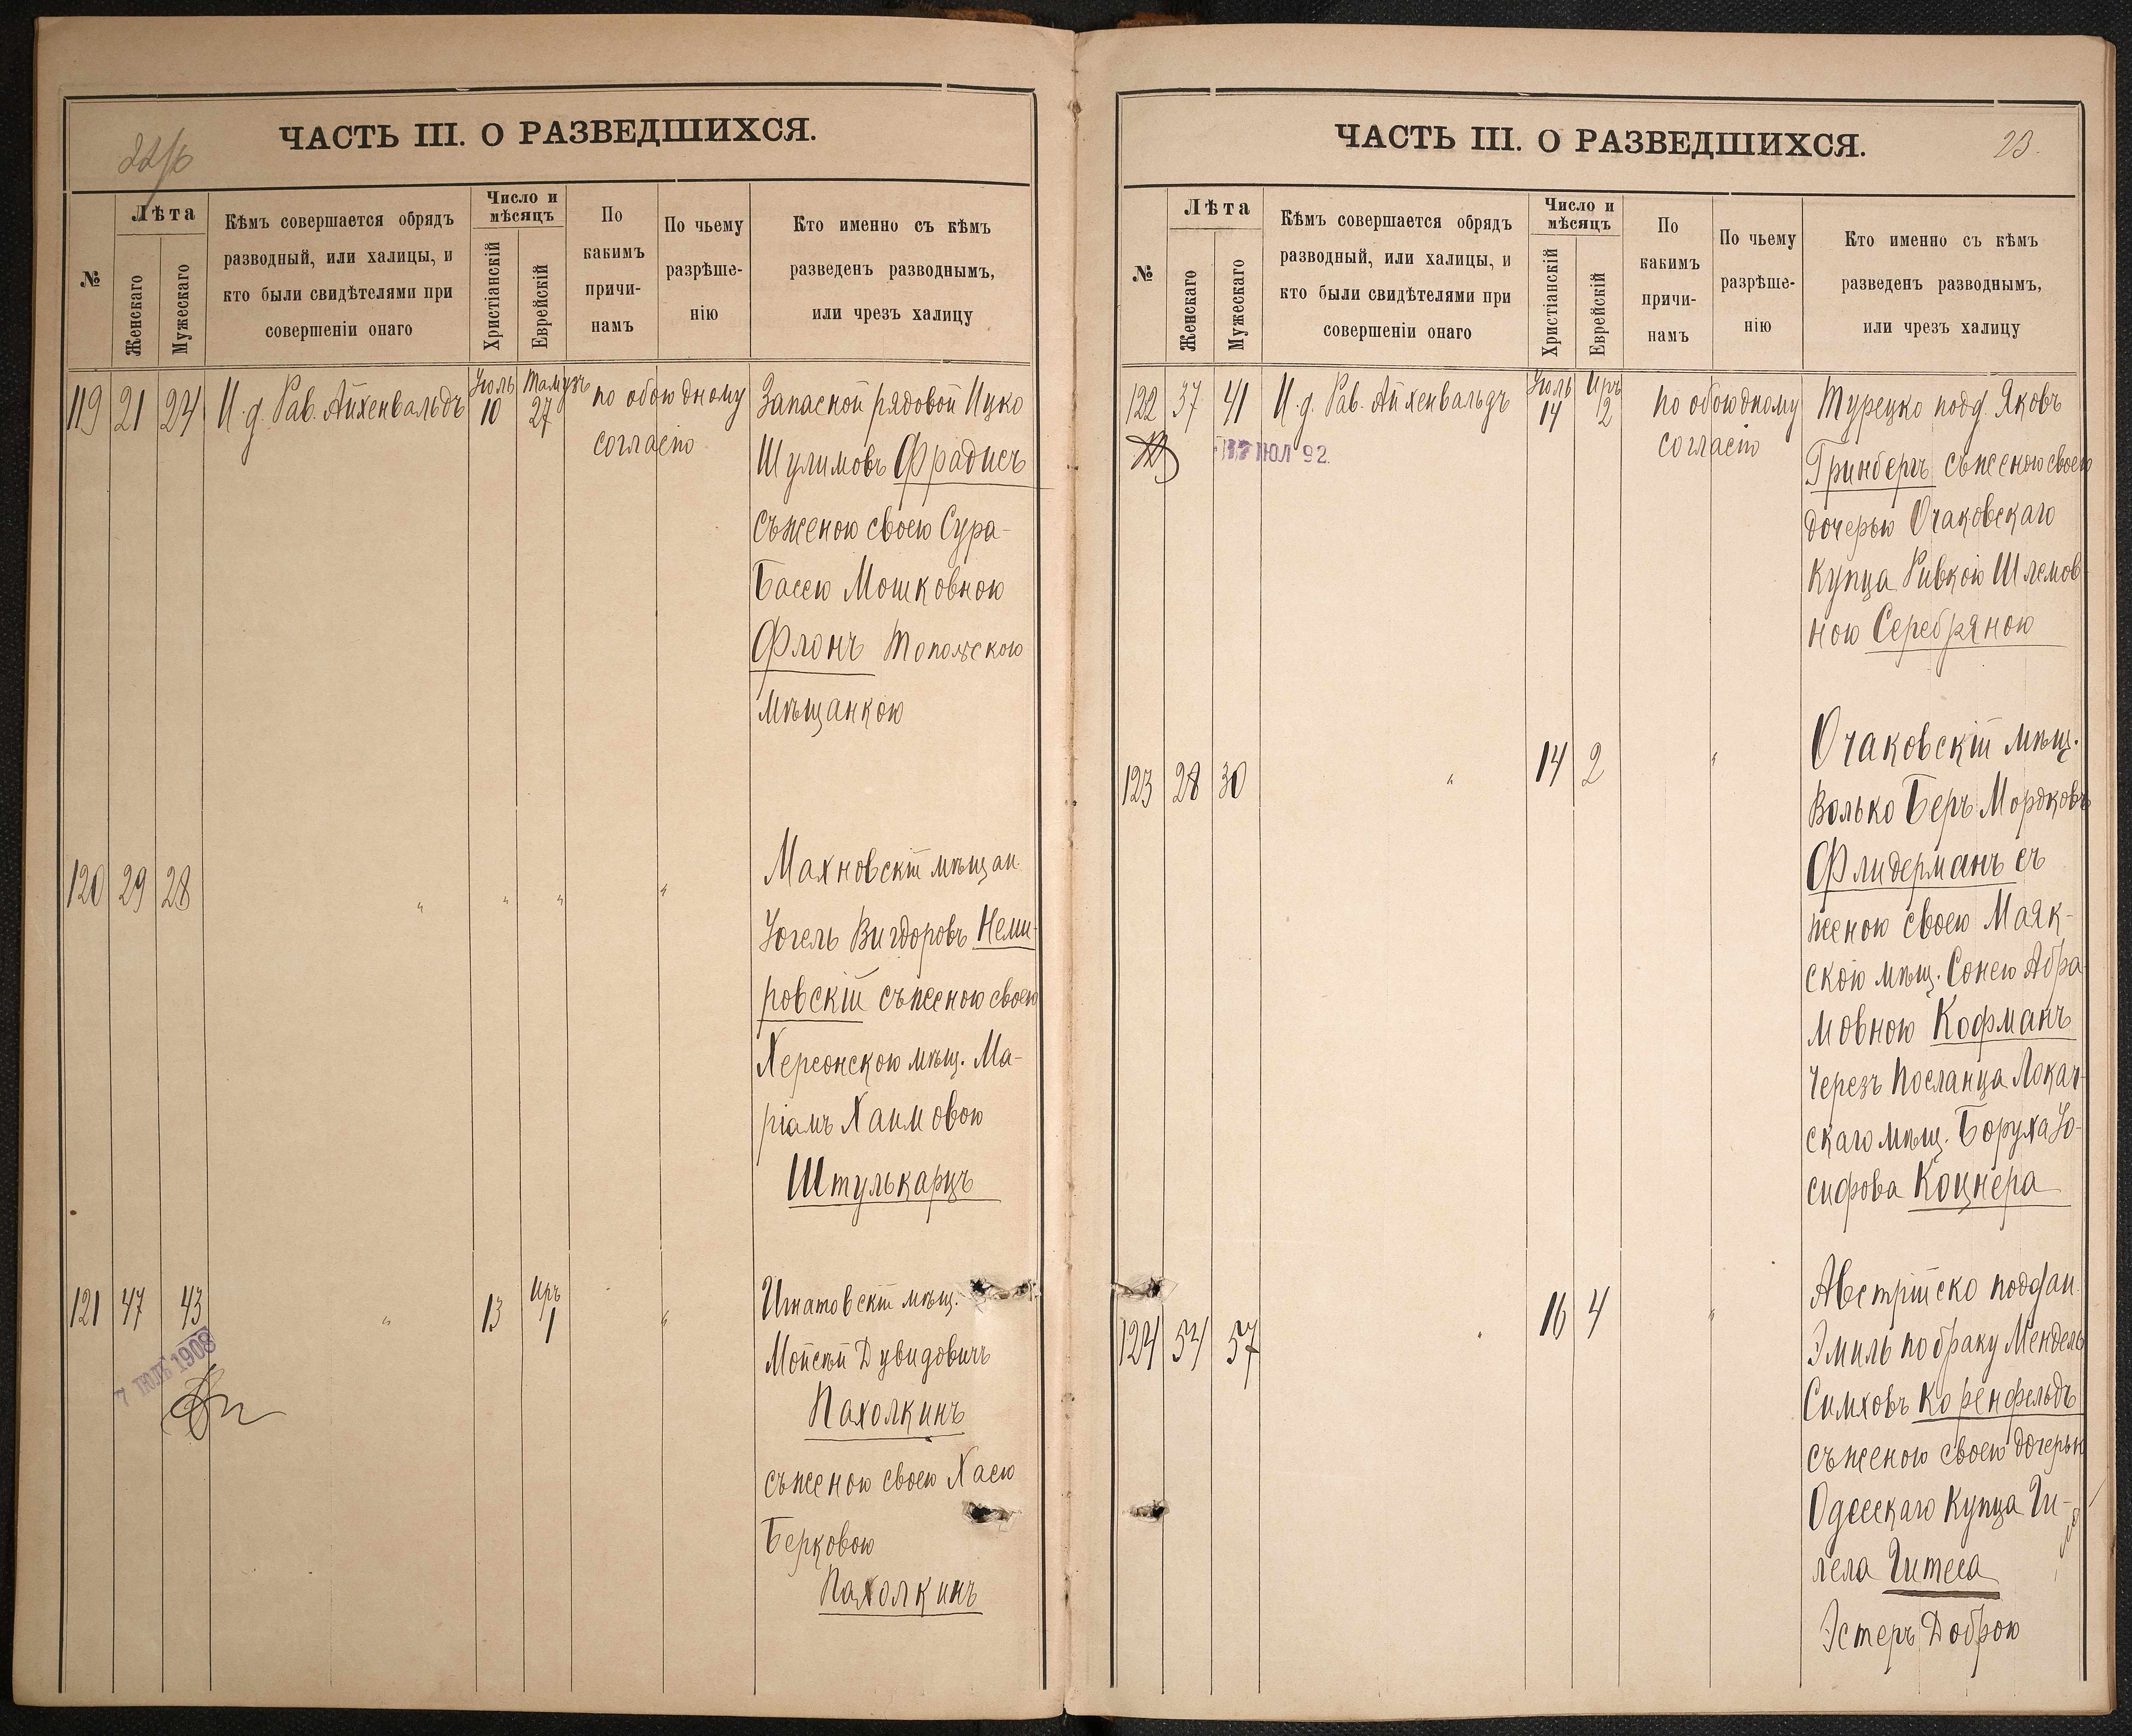 22/б
ЧАСТЬ III. О РАЗВЕДШИХСЯ.
№
Лѣта
Женскаго
Мужескаго
Кѣмъ совершается обрядъ
разводный, или халицы, и
кто были свидѣтелями при
совершеніи онаго
Число и
мѣсяцъ
Христіанскій
Еврейскій
По
какимъ
причи-
намъ
По чьему
разрѣше-
нію
Кто именно съ кѣмъ
разведенъ разводнымъ,
или чрезъ халицу
119 21 24 И.д. Рав. Айхенвальдъ Іюль 10 Тамузъ 27 по обоюдному
согласію
Запасной рядовой Ицко
Шулимовъ Фрадисъ
съ женою своею Сура-
Басею Мошковною
Флонъ
мѣщанкою
120 29 28 " " " "
Махновскій мѣщан.
Іогель Вигдоровъ Неми-
ровскій съ женою своею
Херсонскою мѣщ. Ма-
ріамъ Хаимовою
Штулькарцъ
121 47 43 " 13 Иръ 1 "
7 ІЮЛ 1908
Игнатовскій мѣщ.
Мойсей Дувидовичъ
Пахолкинъ
съ женою своею Хаею
Берковою
Пахолкинъ
ЧАСТЬ III. О РАЗВЕДШИХСЯ.
23.
№
Лѣта
Женскаго
Мужескаго
Кѣмъ совершается обрядъ
разводный, или халицы, и
кто были свидѣтелями при
совершеніи онаго
Число и
мѣсяцъ
Христіанскій
Еврейскій
По
какимъ
причи-
намъ
По чьему
разрѣше-
нію
Кто именно съ кѣмъ
разведенъ разводнымъ,
или чрезъ халицу
122 37 41 И.д. Рав. Айхенвальдъ Іюль 14 Иръ 2 по обоюдному
согласію
ІЮЛ 92
Турецко подд. Яковъ
Гринбергъ съ женою своею
дочерью Очаковскаго
Купца Ривкою Шлемов-
ною Серебряною
123 28 30 " 14 2 "
Очаковскій мѣщ.
Волько Беръ Мордковъ
Флидерманъ съ
женою своею Маяк-
скою мѣщ. Сонею Абра-
мовною Кофманъ
Черезъ посланца Локач-
скаго мѣщ. Боруха Іо-
сифова Коцнера
124 54 57 " 16 4 "
Австрійско поддан.
Эмиль по браку Мендель
Симховъ Коренфельдъ
съ женою своею дочерью
Одесскаго Купца Ги-
лела Гитеса
Эстеръ Доброю